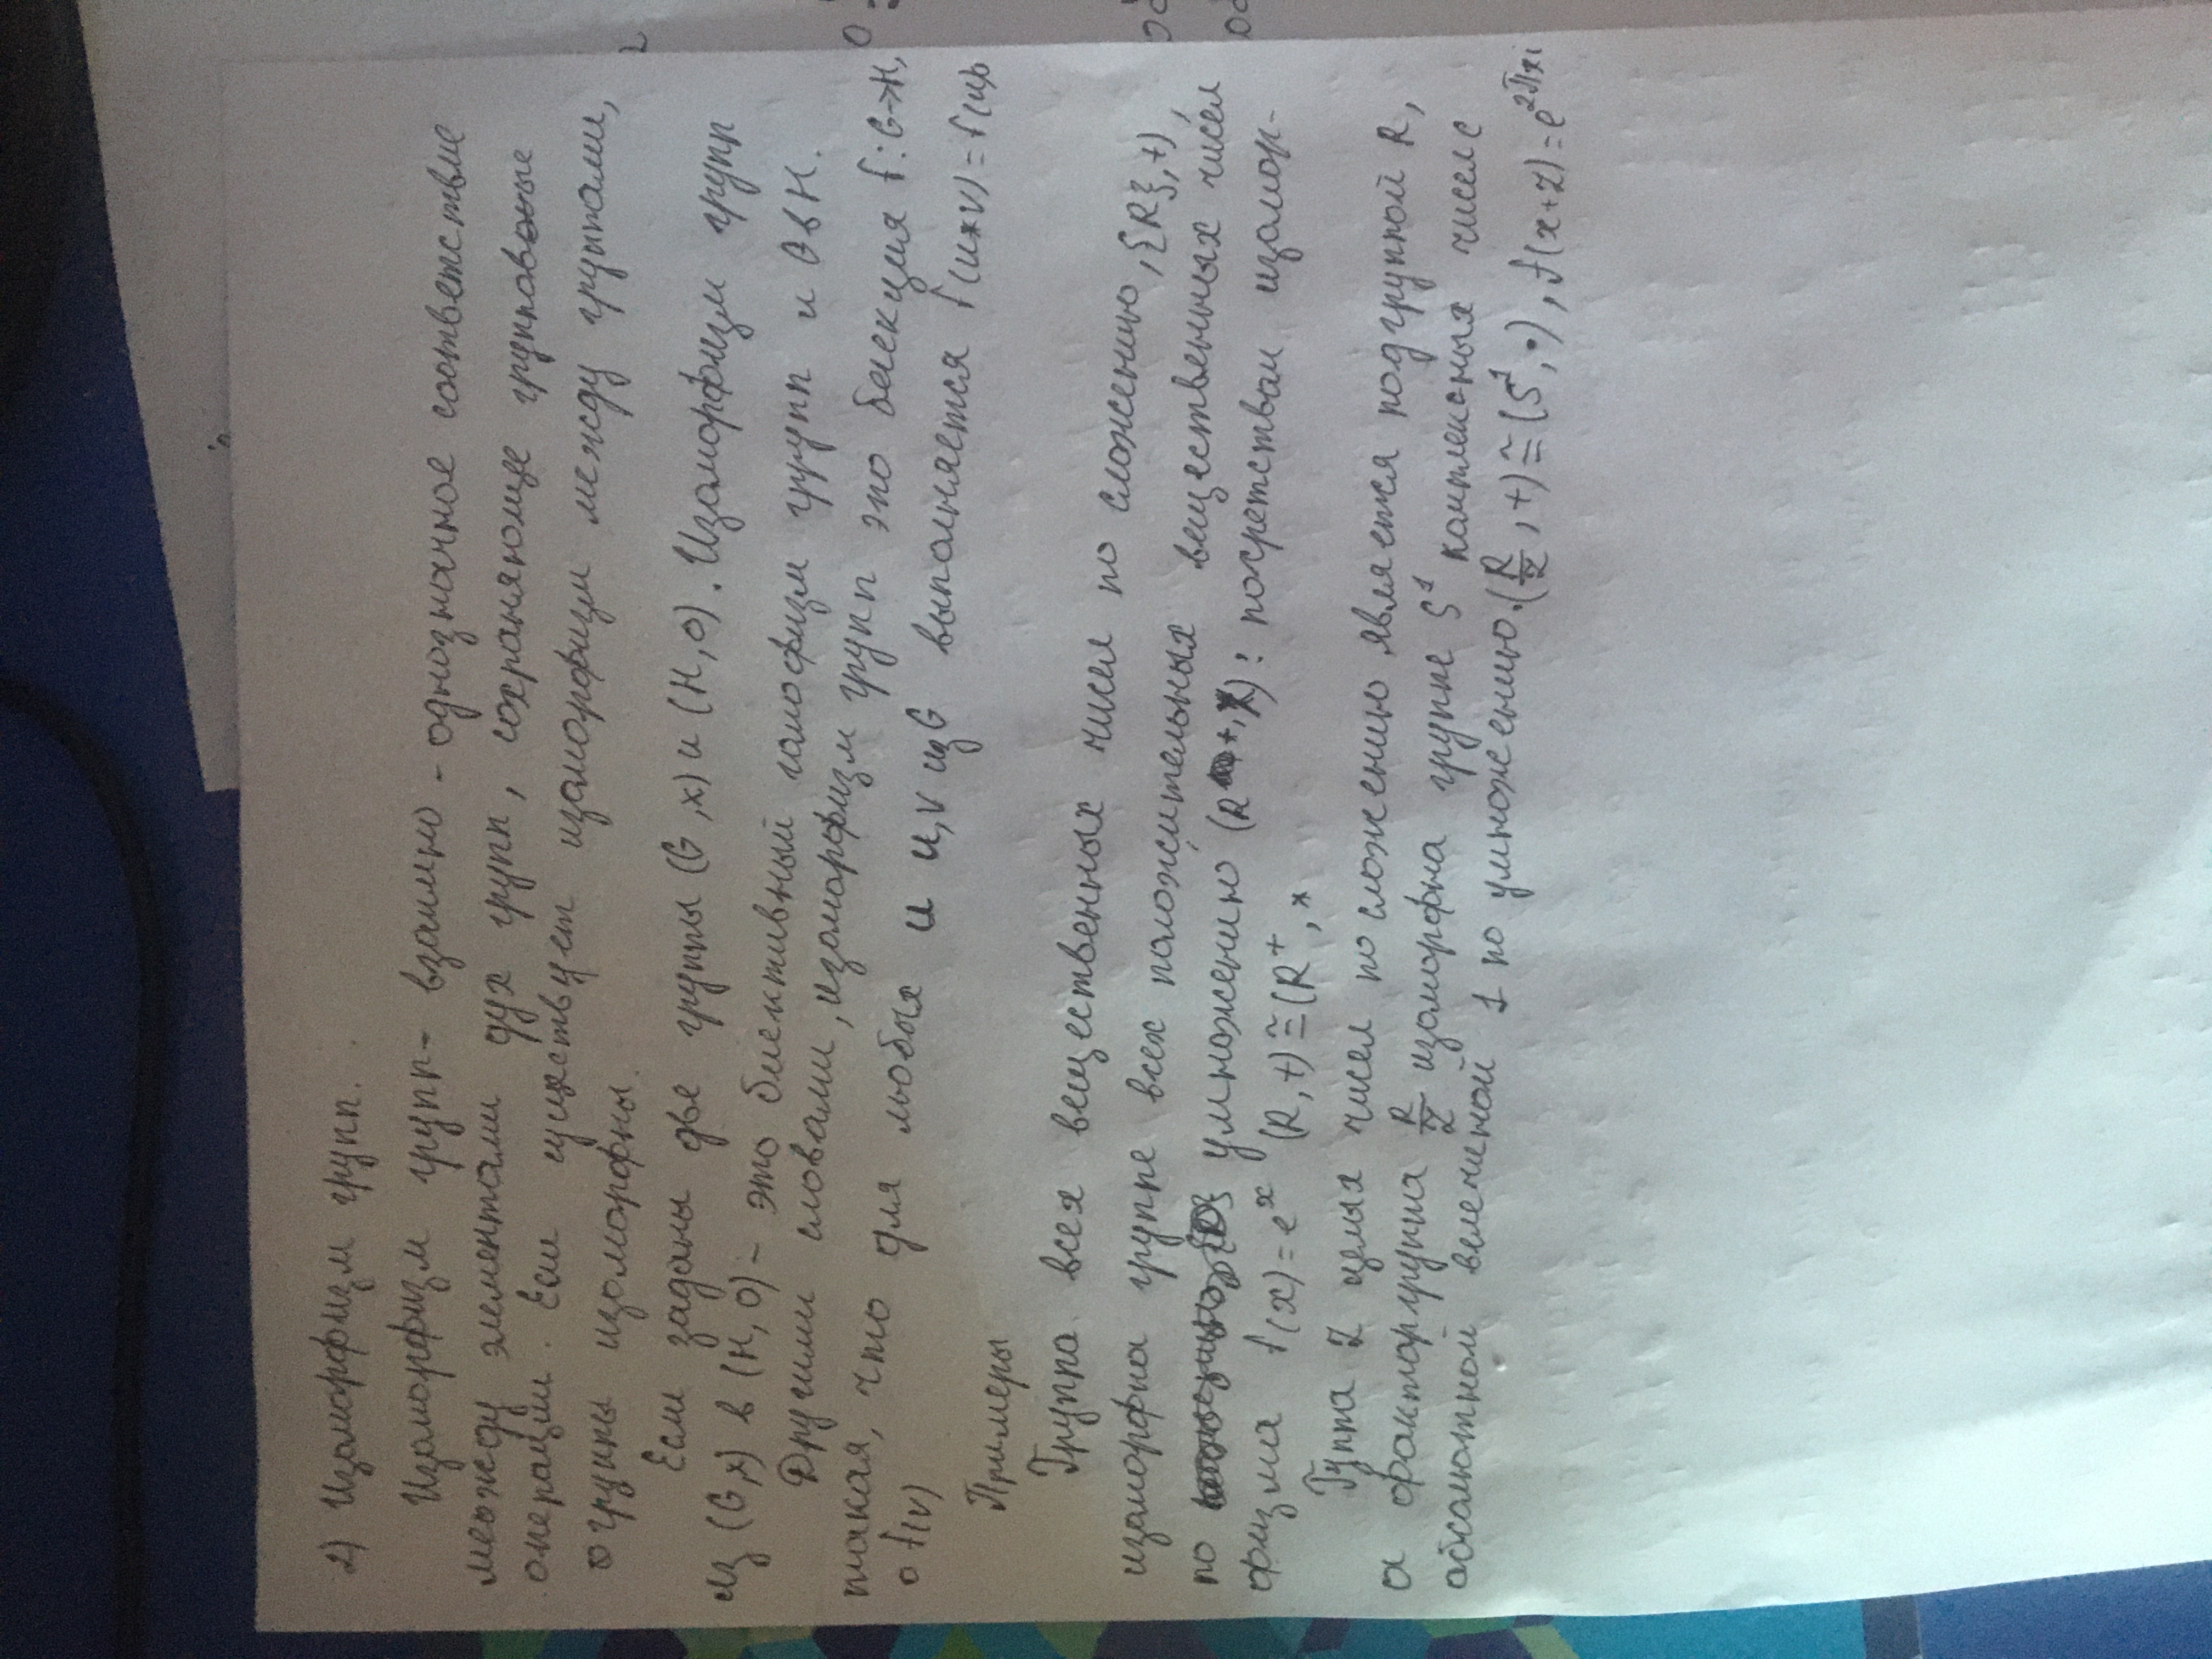 2) Изоморфизм групп.
Изоморфизм групп - взаимно - однозначное соответствие
между элементами дух групп, сохраняющие групповые
операции. Если существует изоморфизм между группами,
о группы изоморфны.
Если заданы две группы (G,x) и (H,0). Изоморфизм групп
из (G,x) в (H,0) - это биективный гомофизм групп и G в H.
Другими словами, изоморфизм групп это биекция f:G→H,
такая, что для любых и u,v из G выполняется f(u*v)=f(u)о
о f(v)
Примеры
Группа всех вещественных чисел по сложению, {R},+),
изоморфна группе всех положительных вещественных чисел
по умножению (R+,X): посретствам изомор-
физма f(x)=e^x (R,+)≅(R^+,*
Гуппа Z целых чисел по сложению является подгруппой R,
а факторгруппа R/Z изоморфна группе S^1 комплексных чисел с
абсолютной велечиной 1 по умножению. (R/Z,+)≅(S^1,·), f(x+Z)=e^2Пxi